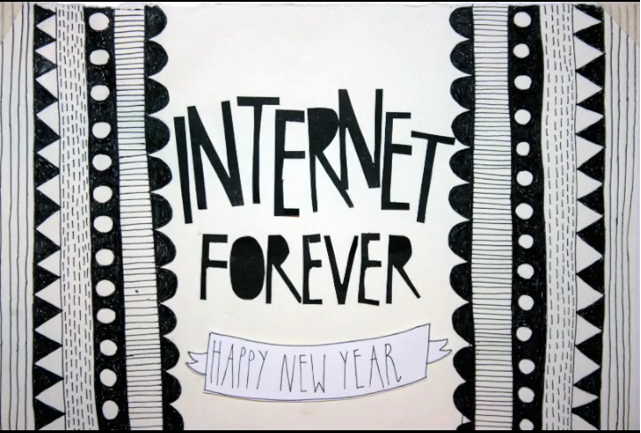 INTERNET
FOREVER
HAPPY NEW YEAR